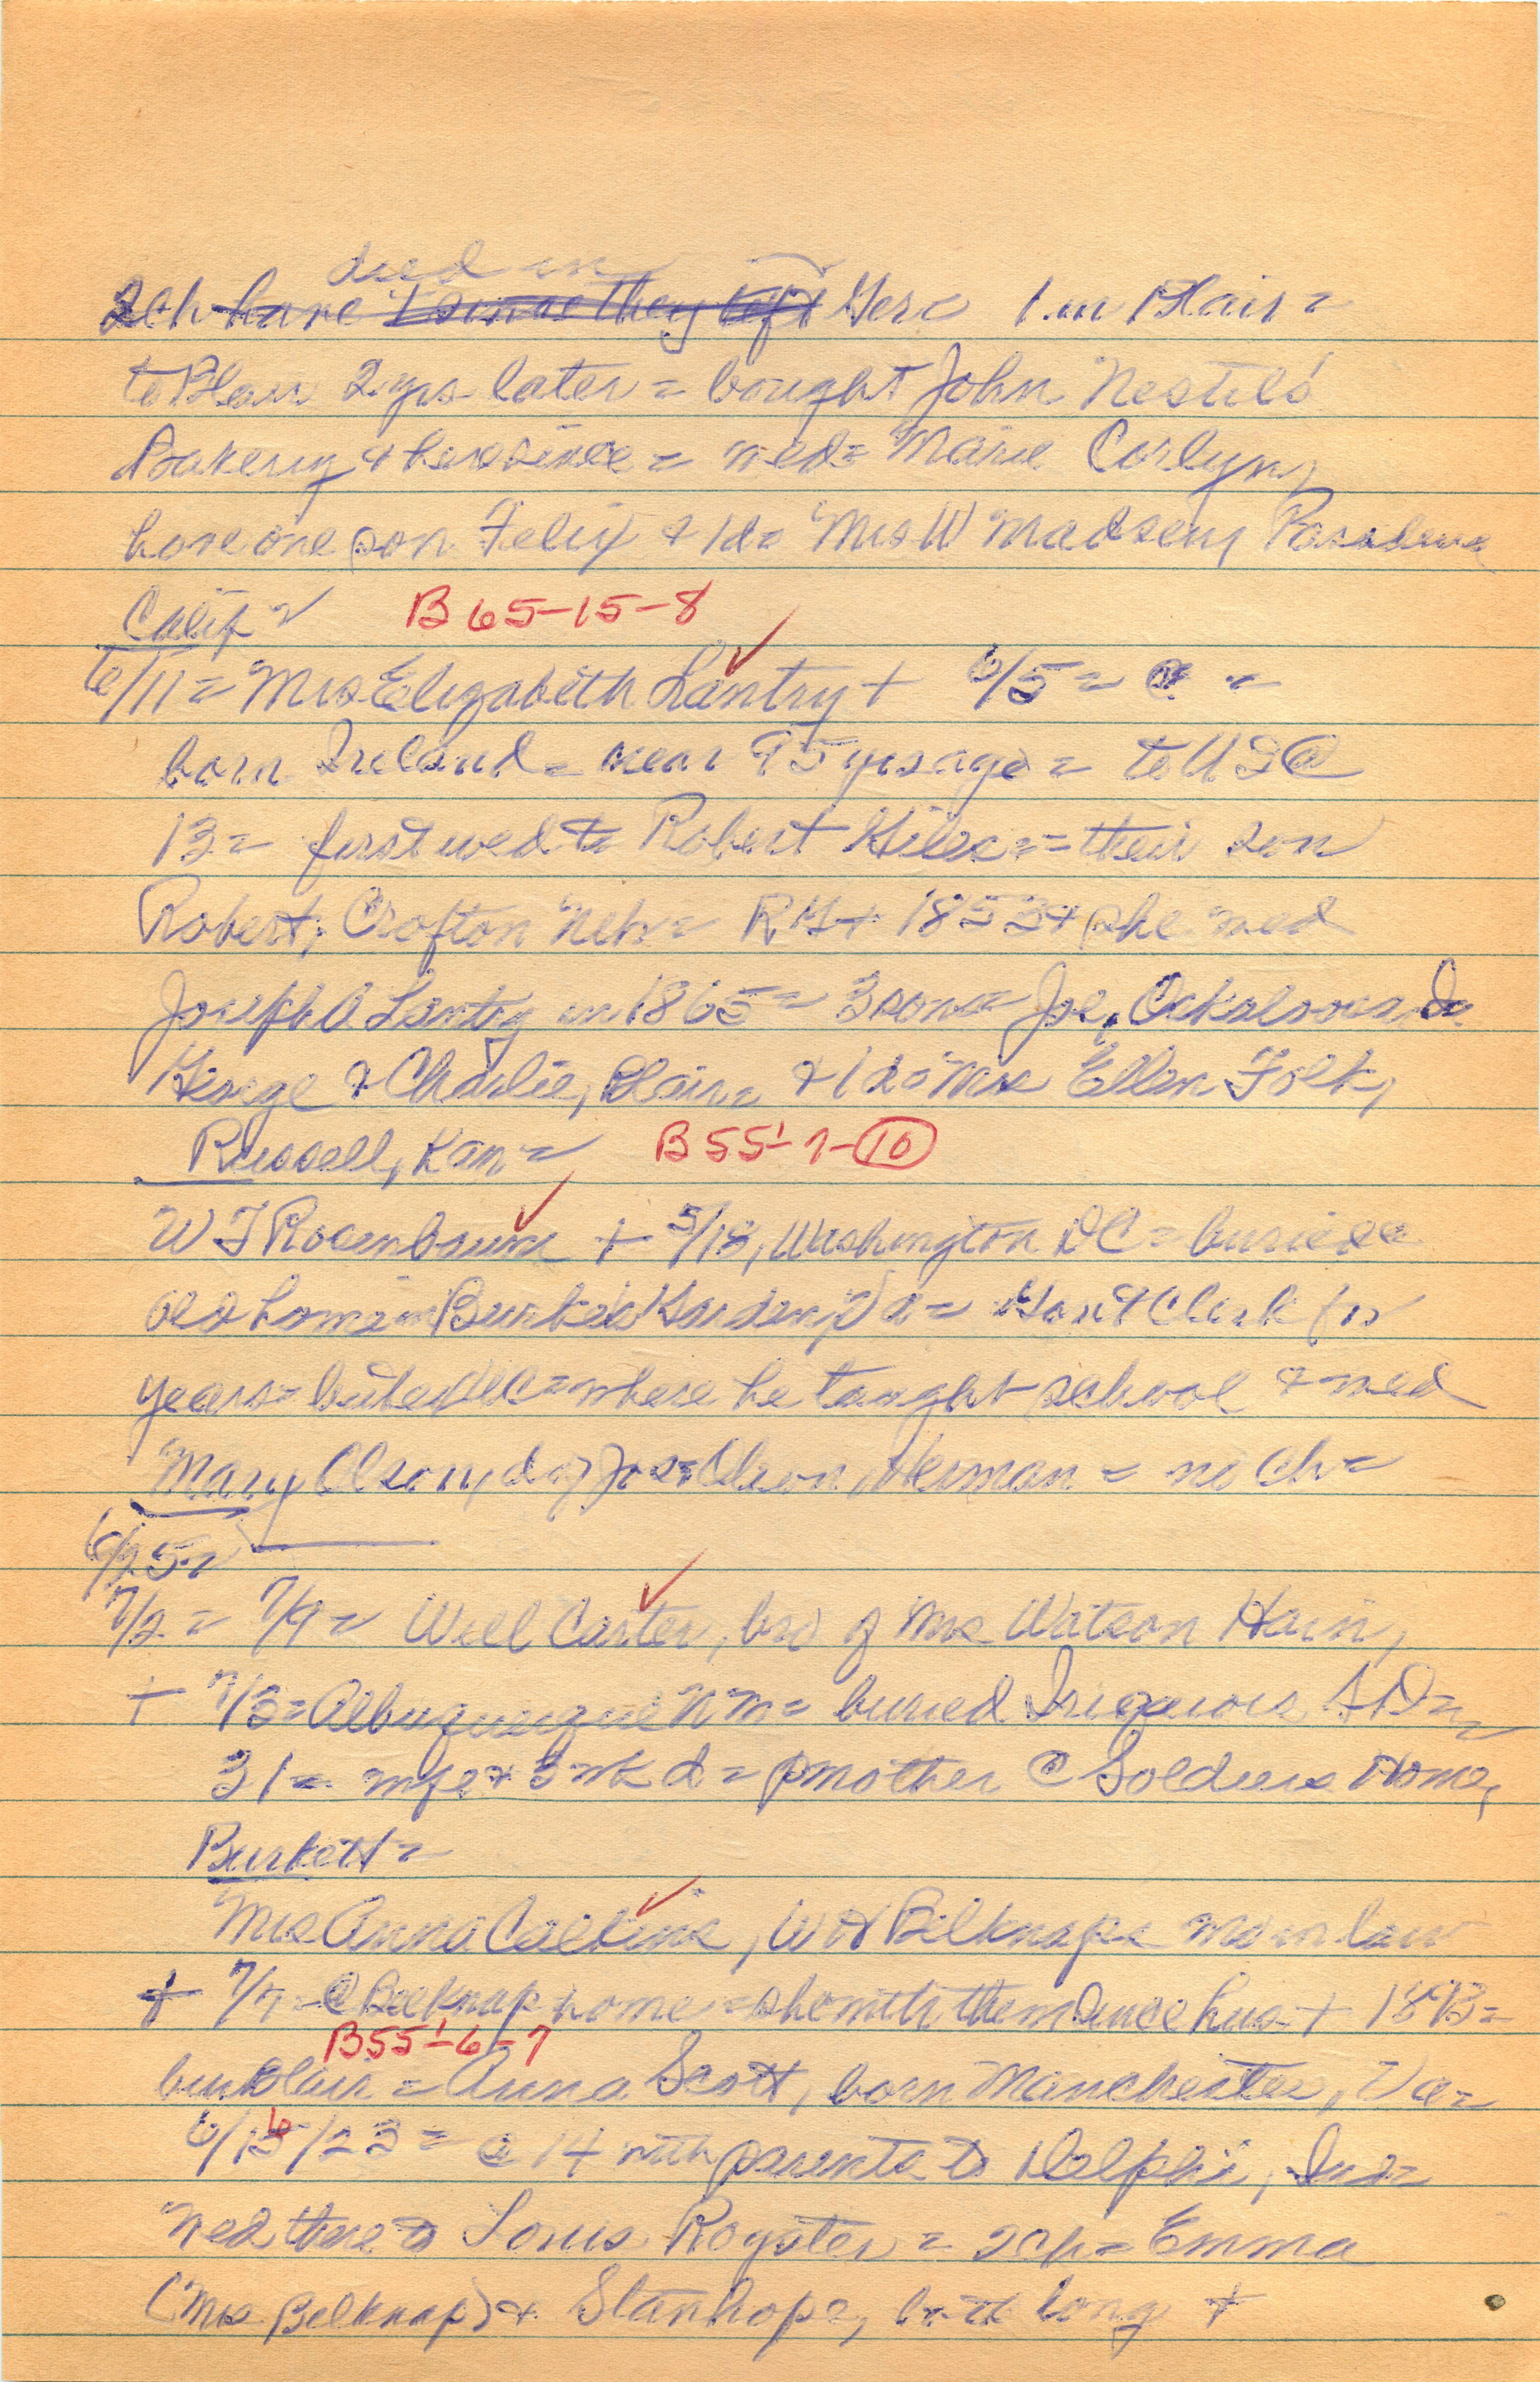 died in
2ch have + since they left Gero 1 in Blair =
to Blair 2 yrs later = bought John Nestel's
Bakery & here since = wed = Marie Corlyn,
have one son Felix & 1d = Mrs W Madsen, Pasadena
Calif = B 65-15-8
6/11 = Mrs Elizabeth Lantry + 6/5 = @ =
born Ireland = near 95 yrs ago = to USA @
13 = first wed to Robert = their son
Robert, Crofton Neb = RG + 1853 + she wed
Joseph A Lantry in 1865 = 3 sons = Joe, Oskaloosa, Ia
George & Charlie, Blair = & 1d = Mrs Ellen Folk,
Russell, Kan = B 55-7-10
W T Rosenbaum + 5/18, Washington DC = buried @
old home in Burke's Garden, Va = Gov't Clerk for
years = where he taught school & wed
Mary Olson, d of Jos Olson, Herman = no ch =
6/25 =
7/2 = 7/9 = Will Carter, bro of Mrs Watson Hain,
+ 7/3 = Albuquerque N M = buried Iroquois SD =
31 = wife + 3 wk d = mother @ Soldiers Home,
Burkett =
Mrs Anna Calkins, W H Belknaps Mo in law
+ 7/7 = @ Belknap home = she with them since hus + 1893 =
B55-6-7
bur Blair = Anna Scott, born Manchester, Va =
6/15 6 /23 = @ 14 with parents to Delphi, Ind =
Wed there to Louis Royster = 2ch = Emma
(Mrs Belknap) & Stanhope, both long +